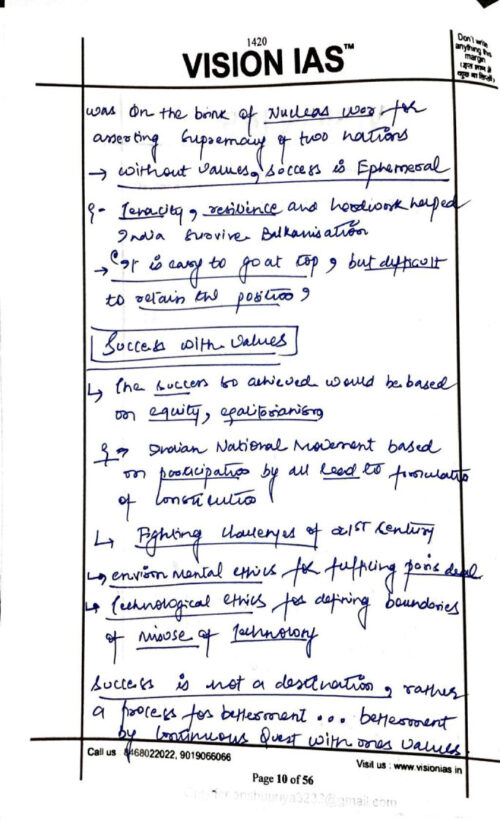 1420
VISION IAS™
Don't write
anything this
margin
was on the brink of Nuclear war for
asserting supremacy of two nations
→ without values, success is Ephemeral
eg- Tenacity, resilience and hardwork helped
India survive Balkanisation
→ "It is easy to go at top, but difficult
to retain the position"
Success with values
↳ The success so achieved would be based
on equity, egalitarianism
eg → Indian National Movement based
on participation by all lead to formulation
of Constitution
↳ Fighting challenges of 21st Century
↳ environmental ethics for fulfilling paris deal
↳ Technological ethics for defining boundaries
of misuse of Technology
Success is not a destination, rather
a process for betterment ... betterment
by continuous Quest with ones values.
Call us : 8468022022, 9019066066
Visit us : www.visionias.in
Page 10 of 56